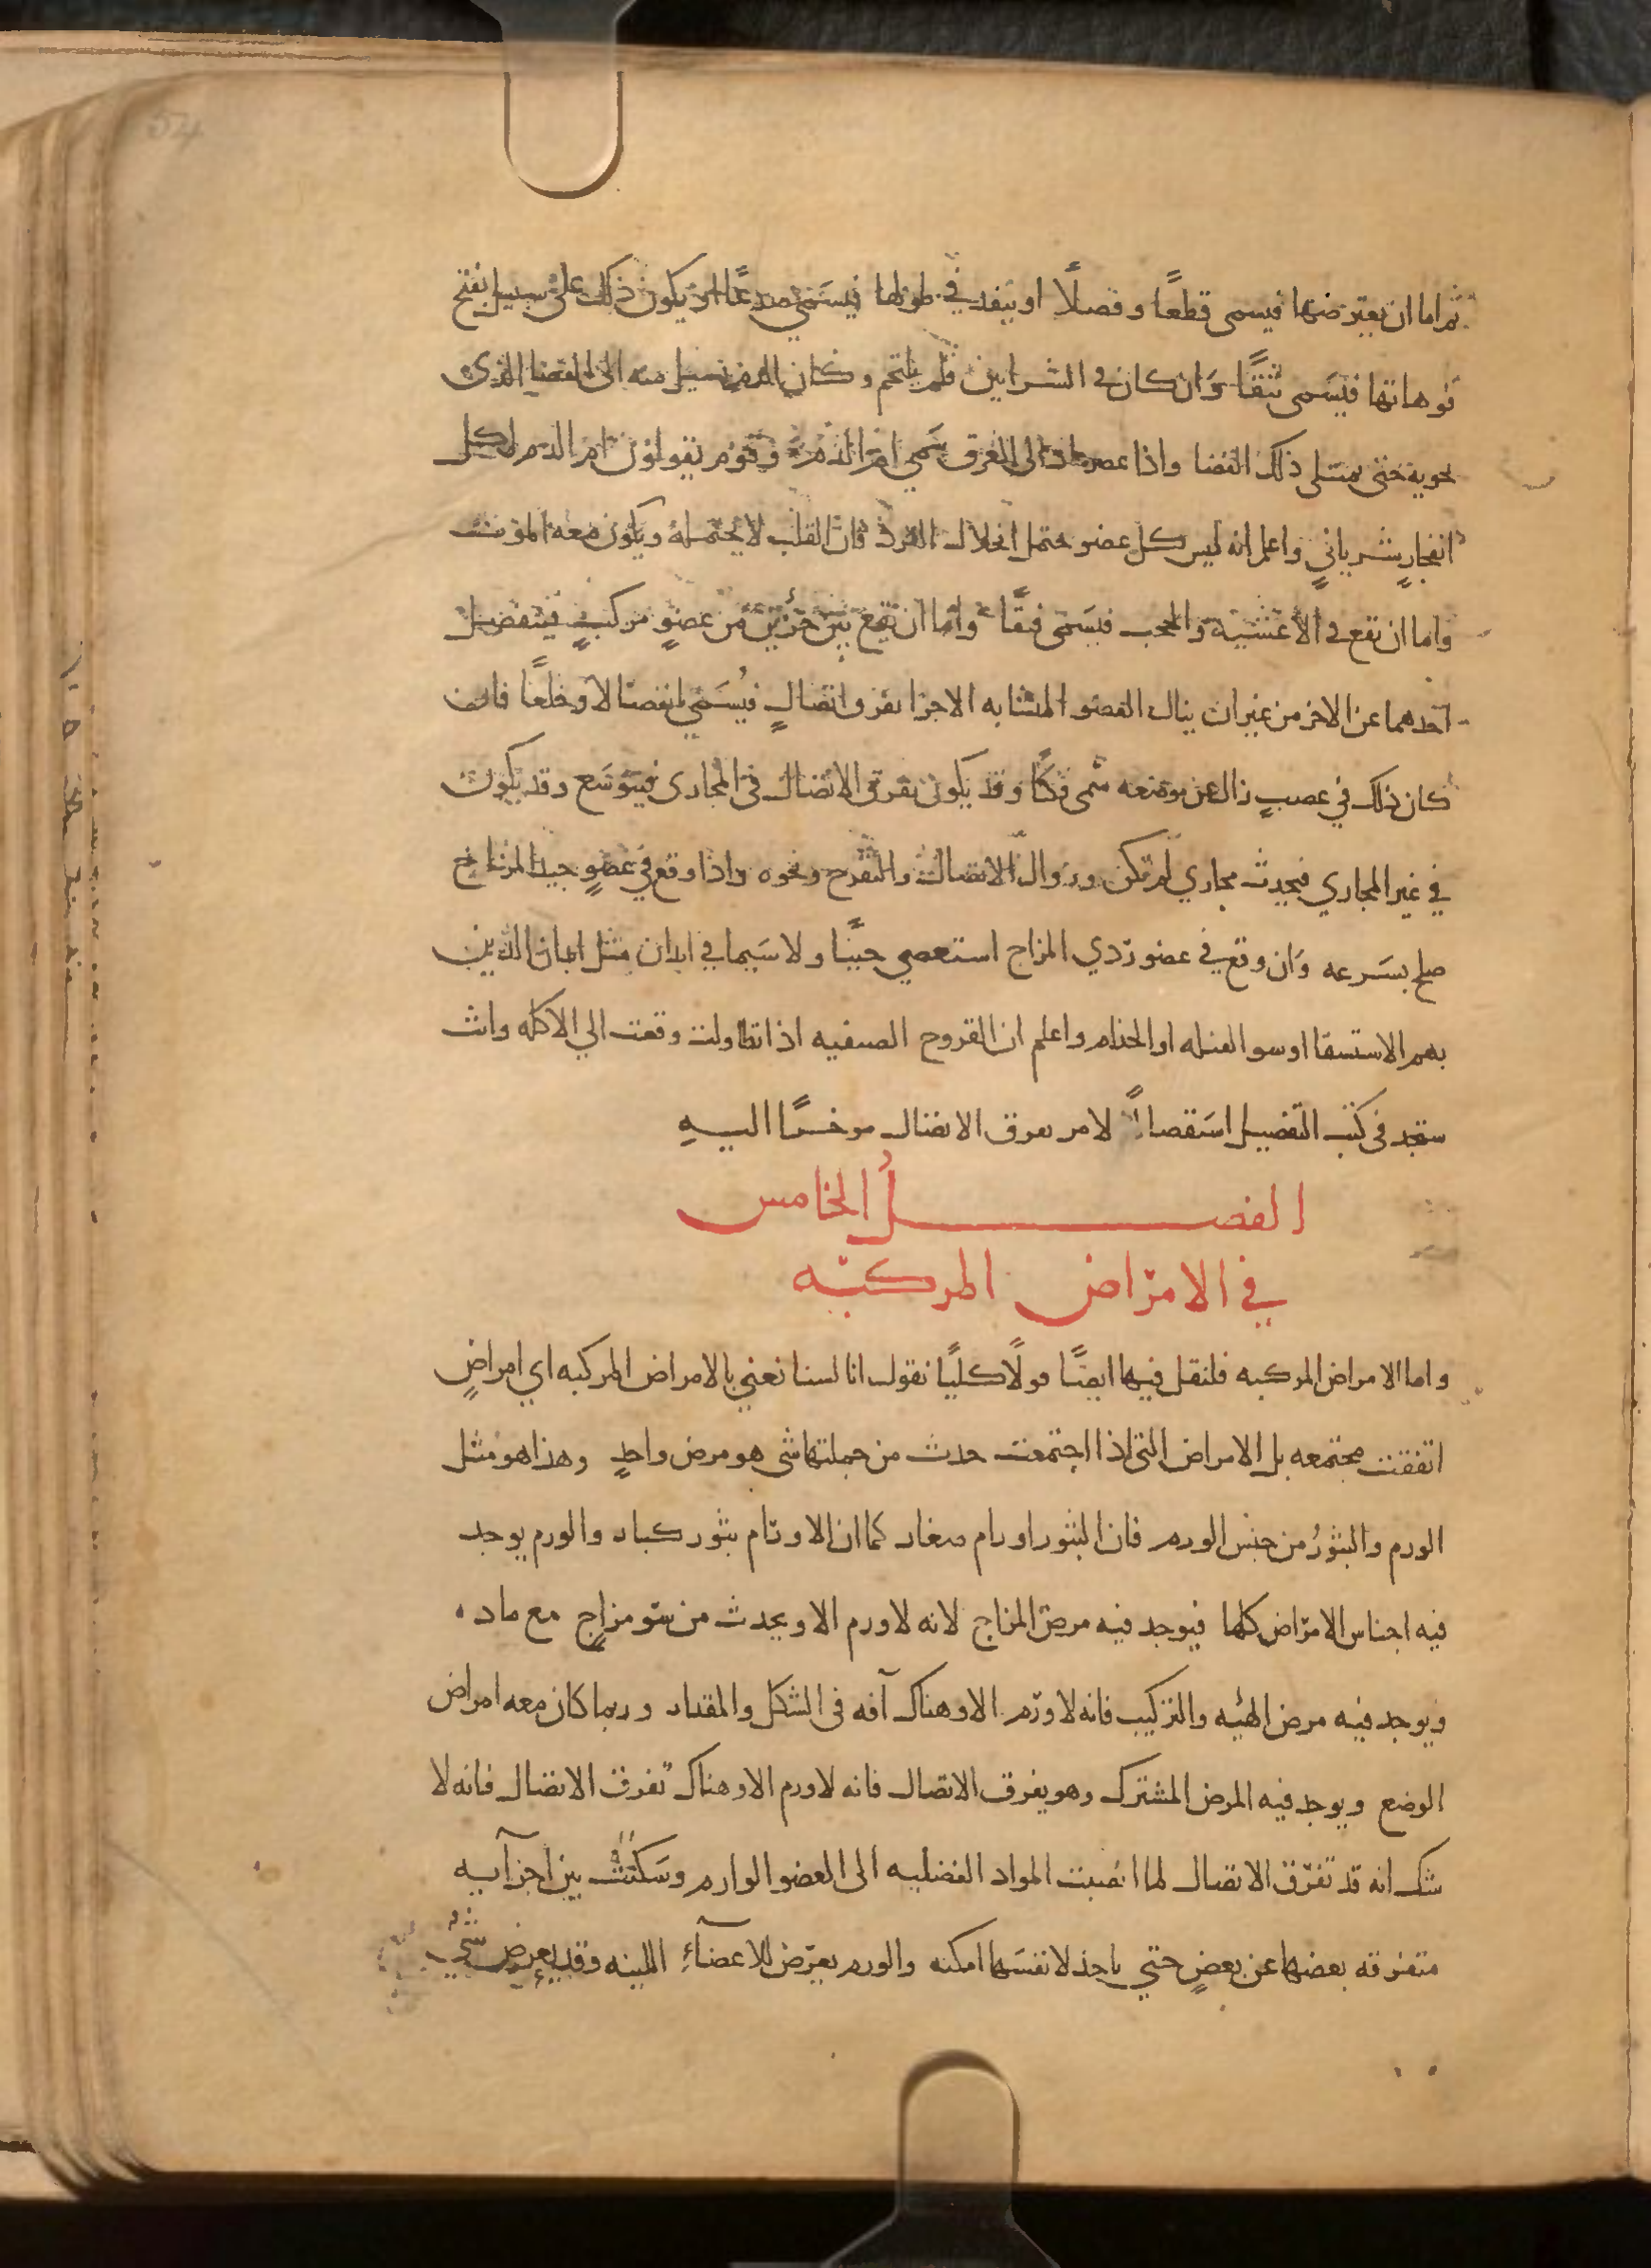 ثم اما ان يعترضها فيسمى قطعًا وفصلًا او ينفد في طولها فيسَمي صدعًا او يكون ذلك على سبيل تفتح
فوهاتها فيسَمى بثقًا وَان كان في الشرايين فلم يلتحم وكان الدم يسيل منه الى الفضا الذي
يحويه حتى يمتلى ذلك الفضا واذا عصر عاد الى العرق سَمي ام الدم وقوم يقولون ام الدم لكل
انفجارٍ شرياني واعلم انه ليس كل عضو يحتمل انحلال الفرد فان القلب لا يحتمله ويكون معه الموت
واما ان تقع في الاغشية والحجب فيسَمى فتقًا واما ان تقع بين جزئين من عضوٍ مركبٍ فينفصل
احدهما عن الاخر من غير ان ينال العضو المتشابه الاجزا تفرق اتصالٍ فيُسَمي انفصالا وخلعًا فان
كان ذلك في عصبٍ زال عن موضعه سُمى فكًا وقد يكون تفرق الاتصال في المجارى فيتوسَع وقد يكون
في غير المجاري فيحدث مجاري لم تكن وزوال الاتصال والتقرح ونحوه واذا وقع في عضوٍ جيد المزاج
صلح بسَرعه وَان وقع في عضو رَدي المزاج استعصي حينًا ولا سَيما في ابدان مثل ابدان الذين
بهم الاستسقا او سو القنيه او الجذام واعلم ان القروح الصيفيه اذا تطاولت وقعت الي الاكله وانت
ستجد في كتب التفصيل استقصاءً لامر تفرق الاتصال موخرًا اليهِ
الفصــــــلُ الخامس
في الامرَاض المركبَه
واما الامراض المركبه فلنقل فيها ايضًا قولًا كليًا نقول انا لسنا نعني بالامراض المركبه اي امراضٍ
اتفقت مجتمعه بل الامراض التي اذا اجتمعت حدث من جملتها شي هو مرض واحدٍ وهذا هو مثل
الورم والبثورُ من جنس الورم فان البثور اورام صغار كما ان الاورَام بثور كبار والورم يوجد
فيه اجناس الامرَاض كلها فيوجد فيه مرض المزاج لانه لا ورم الا ويحدث من سَو مزاجٍ مع ماده
ويوجد فيه مرض الهئيه والتركيب فانه لا ورَم الا وهناك آفه في الشكل والمقدار وربما كان معه امراض
الوضع ويوجد فيه المرض المشترك وهو تفرق الاتصال فانه لا ورم الا وهناك تفرق الاتصال فانه لا
شك انه قد تفرّق الاتصال لما انصبت المواد الفضليه الى العضو الوارم وسَكنت بين اجزآيه
متفرقه بعضها عن بعضٍ حتي ياخذ لانفسَها امكنه والورم يعرَض للاعضآءِ اللينه وقد يعرض شي